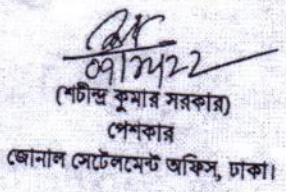 (শচীন্দ্র কুমার সরকার)
পেশকার
জোনাল সেটেলমেন্ট অফিস, ঢাকা।